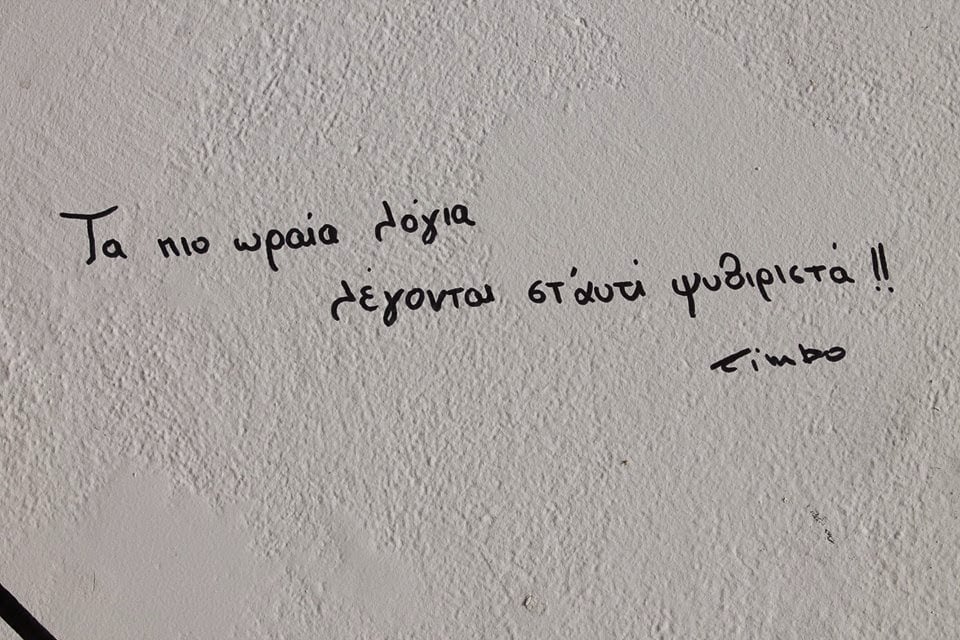 Τα πιο ωραία λόγια
λέγονται στ'αυτί ψυθιριστά!!
Timbo